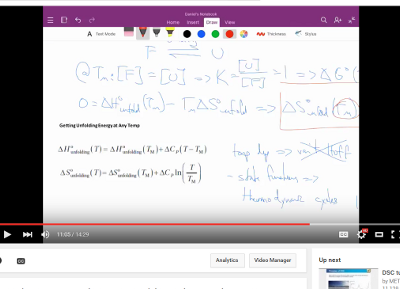 Home Insert Draw View
Text Mode Thickness Styles
F U
@ Tm: [F] = [U] => K = [U]/[F] = 1 => ΔG°
0 = ΔH°unfold (Tm) - TmΔS°unfold => ΔS°unfold (Tm)
Getting Unfolding Energy at Any Temp
ΔH°unfolding(T) = ΔH°unfolding(TM) + ΔCP(T − TM)
ΔS°unfolding(T) = ΔS°unfolding(TM) + ΔCP ln(T/TM)
temp dep => van't Hoff
- state functions =>
thermodynamic cycles
11:05 / 14:29
Analytics Video Manager
Up next
DSC tu
by MET